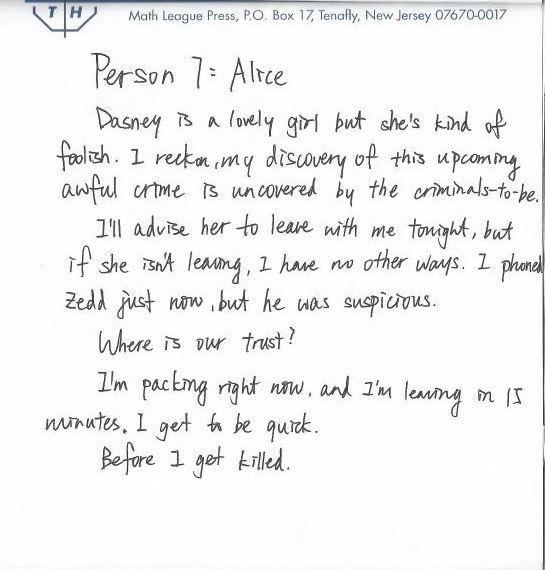 T H
Math League Press, P.O. Box 17, Tenafly, New Jersey 07670-0017
Person 7: Alice
Dasney is a lovely girl but she's kind of
foolish. I reckon, my discovery of this upcoming
awful crime is uncovered by the criminals-to-be.
I'll advise her to leave with me tonight, but
if she isn't leaving, I have no other ways. I phoned
Zedd just now, but he was suspicious.
Where is our trust?
I'm packing right now, and I'm leaving in 15
minutes. I get to be quick.
Before I get killed.